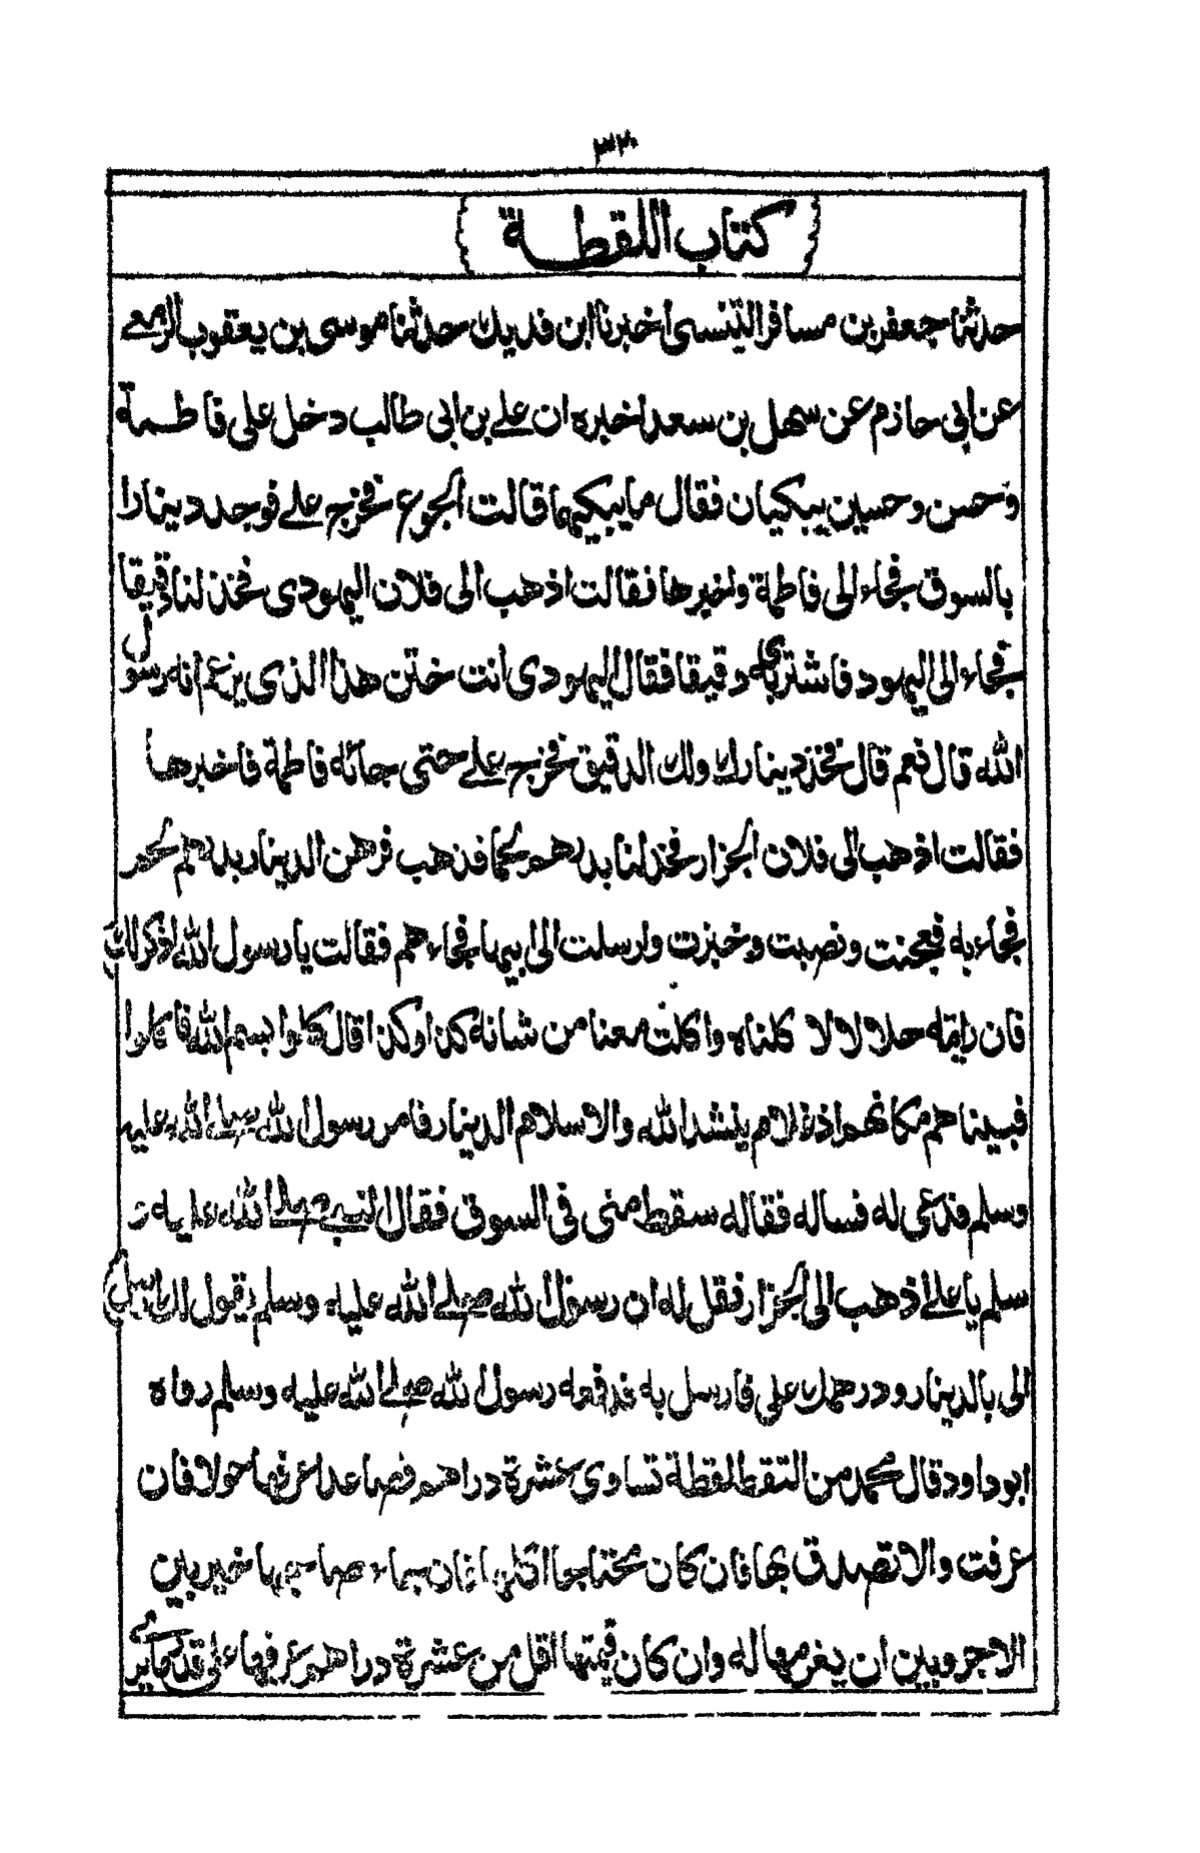 ٣٢٠
كتاب اللقطة
حدثنا جعفر بن مسافر التنيسى اخبرنا ابن فديك حدثنا موسى بن يعقوب الزمعى
عن ابى حازم عن سهل بن سعد اخبره ان على بن ابى طالب دخل على فاطمة
وحسن وحسين يبكيان فقال مايبكيهما قالت الجوع فخرج على فوجد دينارا
بالسوق فجاء الى فاطمة واخبرها فقالت اذهب الى فلان اليهودى فخذ لنا دقيقا
فجاء الى اليهودى فاشترى به دقيقا فقال اليهودى انت ختن هذا الذى يزعم انه رسول
الله قال نعم قال فخذ دينارك ولك الدقيق فخرج على حتى جائه فاطمة فاخبرها
فقالت اذهب الى فلان الجزار فخذ لنا بدرهم لحما فذهب فرهن الدينار بدرهم لحم
فجاء به فعجنت ونصبت وخبزت وارسلت الى ابيها فجاءهم فقالت يا رسول الله اذكر لك
فان رايته حلالا لا كلناه واكلت معنا من شانه كذا وكذا قال كلوا بسم الله فاكلوا
فبيناهم مكانهم اذ غلام ينشد الله والاسلام الدينار فامر رسول الله صلى الله عليه
وسلم فدعى له فساله فقاله سقط منى فى السوق فقال النبى صلى الله عليه و
سلم يا على اذهب الى الجزار فقل له ان رسول الله صلى الله عليه وسلم يقول لك ارسل
الى بالدينار ودرهمك على فارسل به فدفعه رسول الله صلى الله عليه وسلم رواه
ابوداود قال محمد من التقط لقطة تساوى عشرة دراهم فصاعدا عرفها حولا فان
عرفت والا تصدق بها فان كان محتاجا اكلها فان جاء صاحبها خير بين
الاجر وبين ان يغرمها له وان كان قيمتها اقل من عشرة دراهم عرفها على قدر مايرى